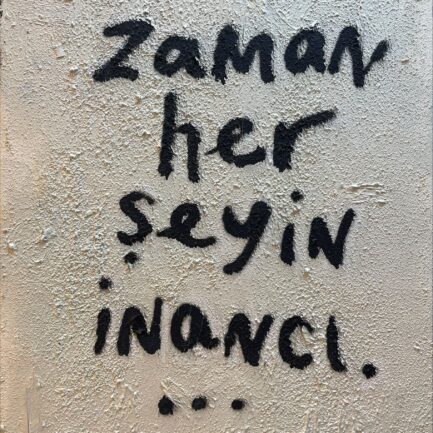 zaman
her
şeyin
inancı.
...